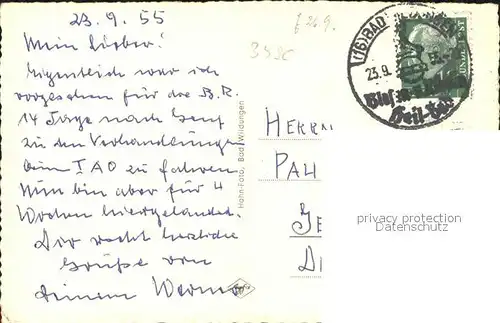 23.9.55
£ 26 9.
Mein Lieber!
Eigentlich war ich
vorgesehen für die B.R.
14 Tage nach Genf
zu den Verhandlungen
beim IAO zu fahren.
Nun bin aber für 4
Wochen hiergelandet.
Dir recht herzliche
Grüße von
deinem Werner
Hahn-Foto, Bad Wildungen
(16) BAD
23.9.
HERRN
PAU
JE
DI
privacy protection
Datenschutz